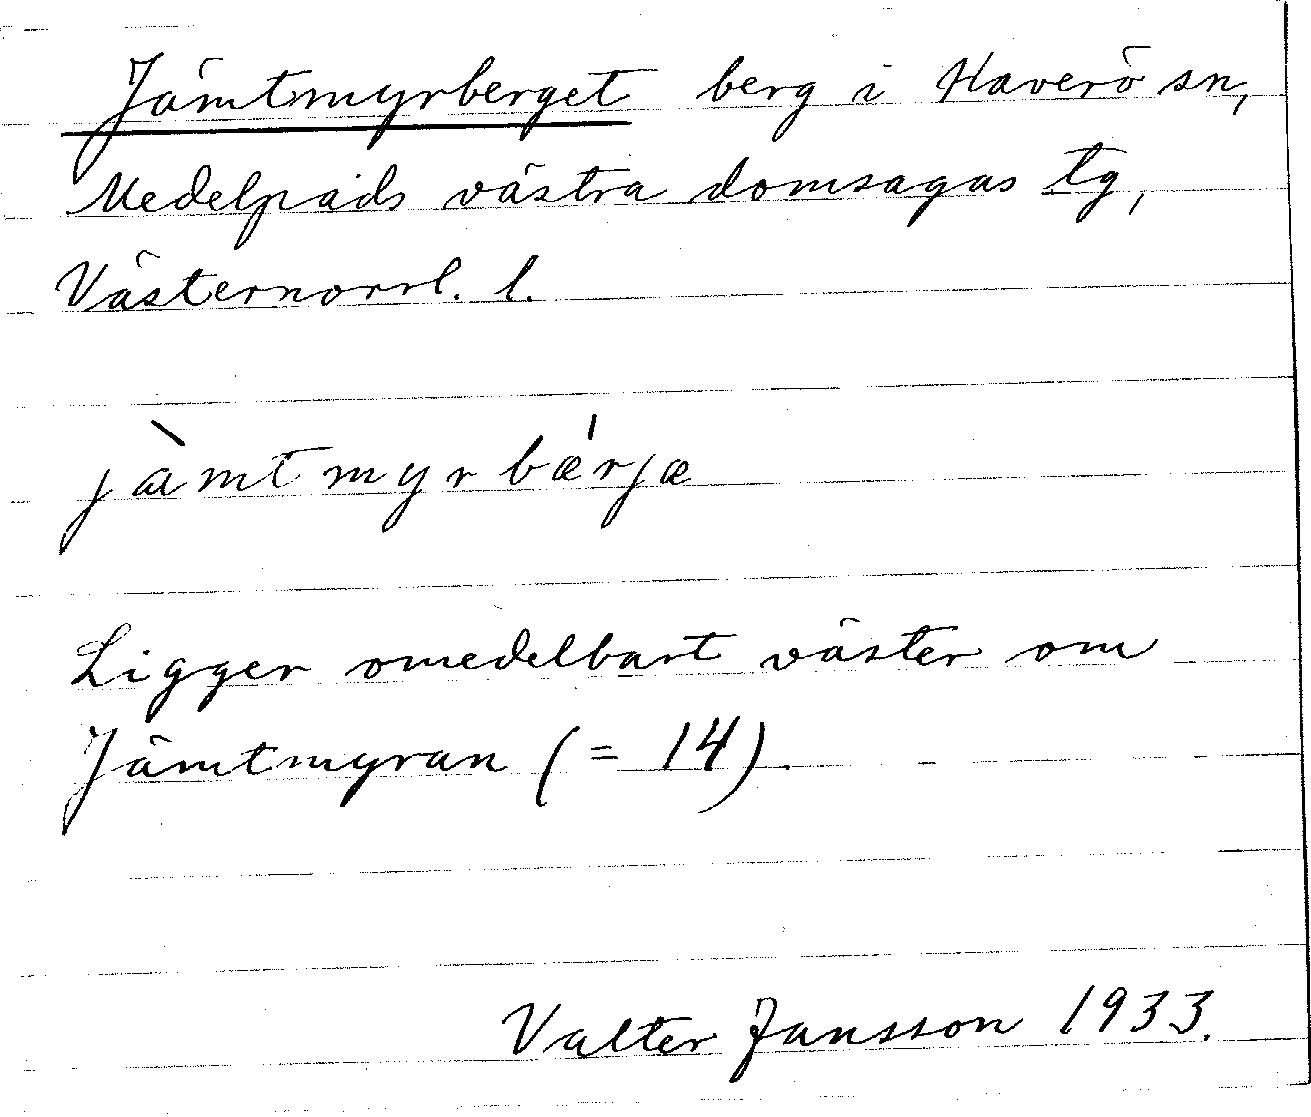 Jämtmyrberget berg i Haverö sn,
Medelpads västra domsagas tg,
Västernorrl. l.
jæ̀mtmyrbǽrjæ
Ligger omedelbart väster om
Jämtmyran (= 14).
Valter Jansson 1933.